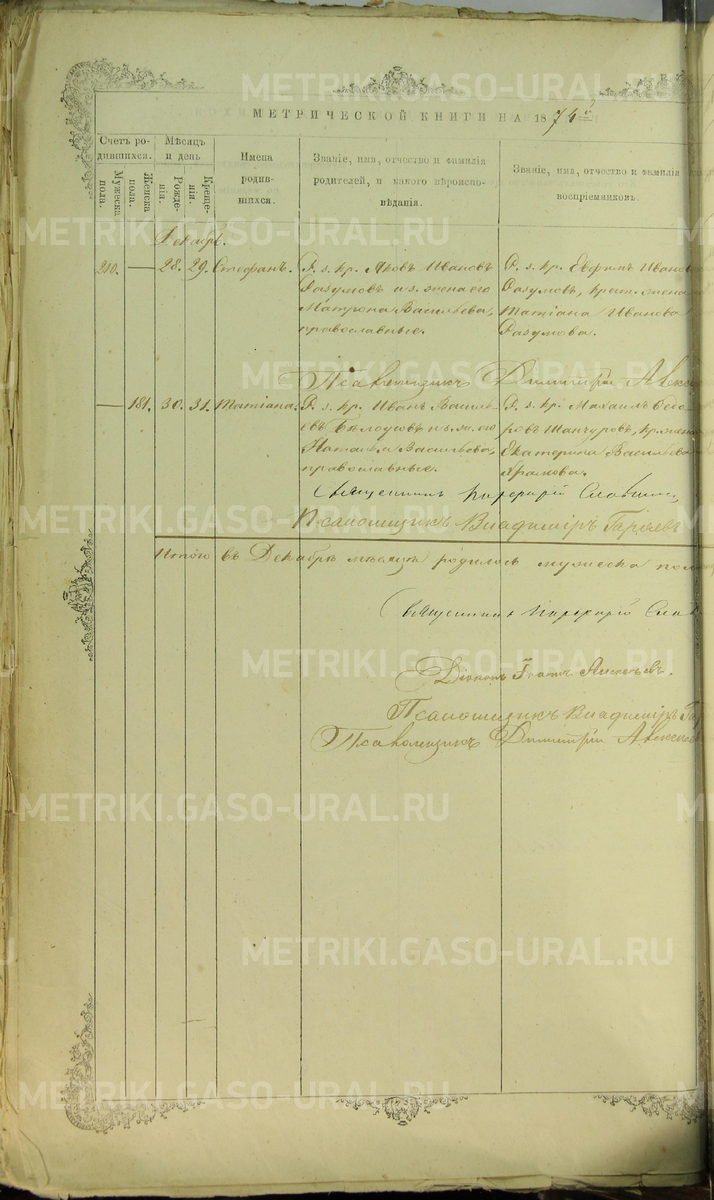 МЕТРИЧЕСКОЙ КНИГИ НА 1874й
Счетъ ро-
дившихся.
Мужеска
пола.
Женска
пола.
Мѣсяцъ
и день
Рожде-
нія.
Креще-
нія.
Имена
родив-
шихся.
Званіе, имя, отчество и фамилія
родителей, и какого вѣроиспо-
вѣданія.
Званіе, имя, отчество и фамилія
воспріемниковъ.
Декабрь.
210. — 28. 29. Стефанъ.
кр. Яковъ Ивановъ
Разумовъ и з. жена его
Матрона Васильева,
православные.
кр. Евфимъ Иванов
Разумовъ, крест. жена
Татіана Иванова
Разумова.
Псаломщикъ Димитрій
— 181. 30. 31. Татіана.
кр. Иванъ Василь-
евъ
Наталья Васильева,
православные.
кр. Михаилъ Ѳедо-
ровъ кр. жена
Екатерина Васильева
Храмова.
Священникъ
Псаломщикъ Владиміръ
Итого въ Декабрѣ мѣсяцѣ родилось мужеска пол
Священникъ
Діаконъ
Псаломщикъ Владиміръ
Псаломщикъ Димитрій
METRIKI.GASO-URAL.RU